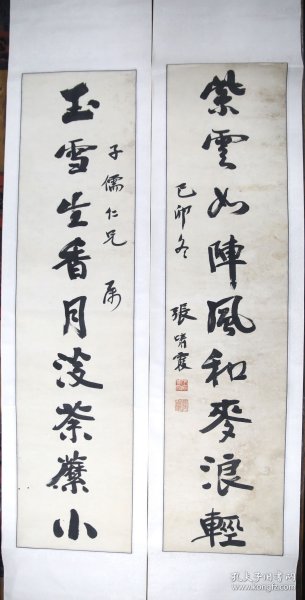 紫雲如陣風和麥浪輕
己卯冬
玉雪生香月淡荼蘼小
子儒仁兄 属
孔夫子旧书网